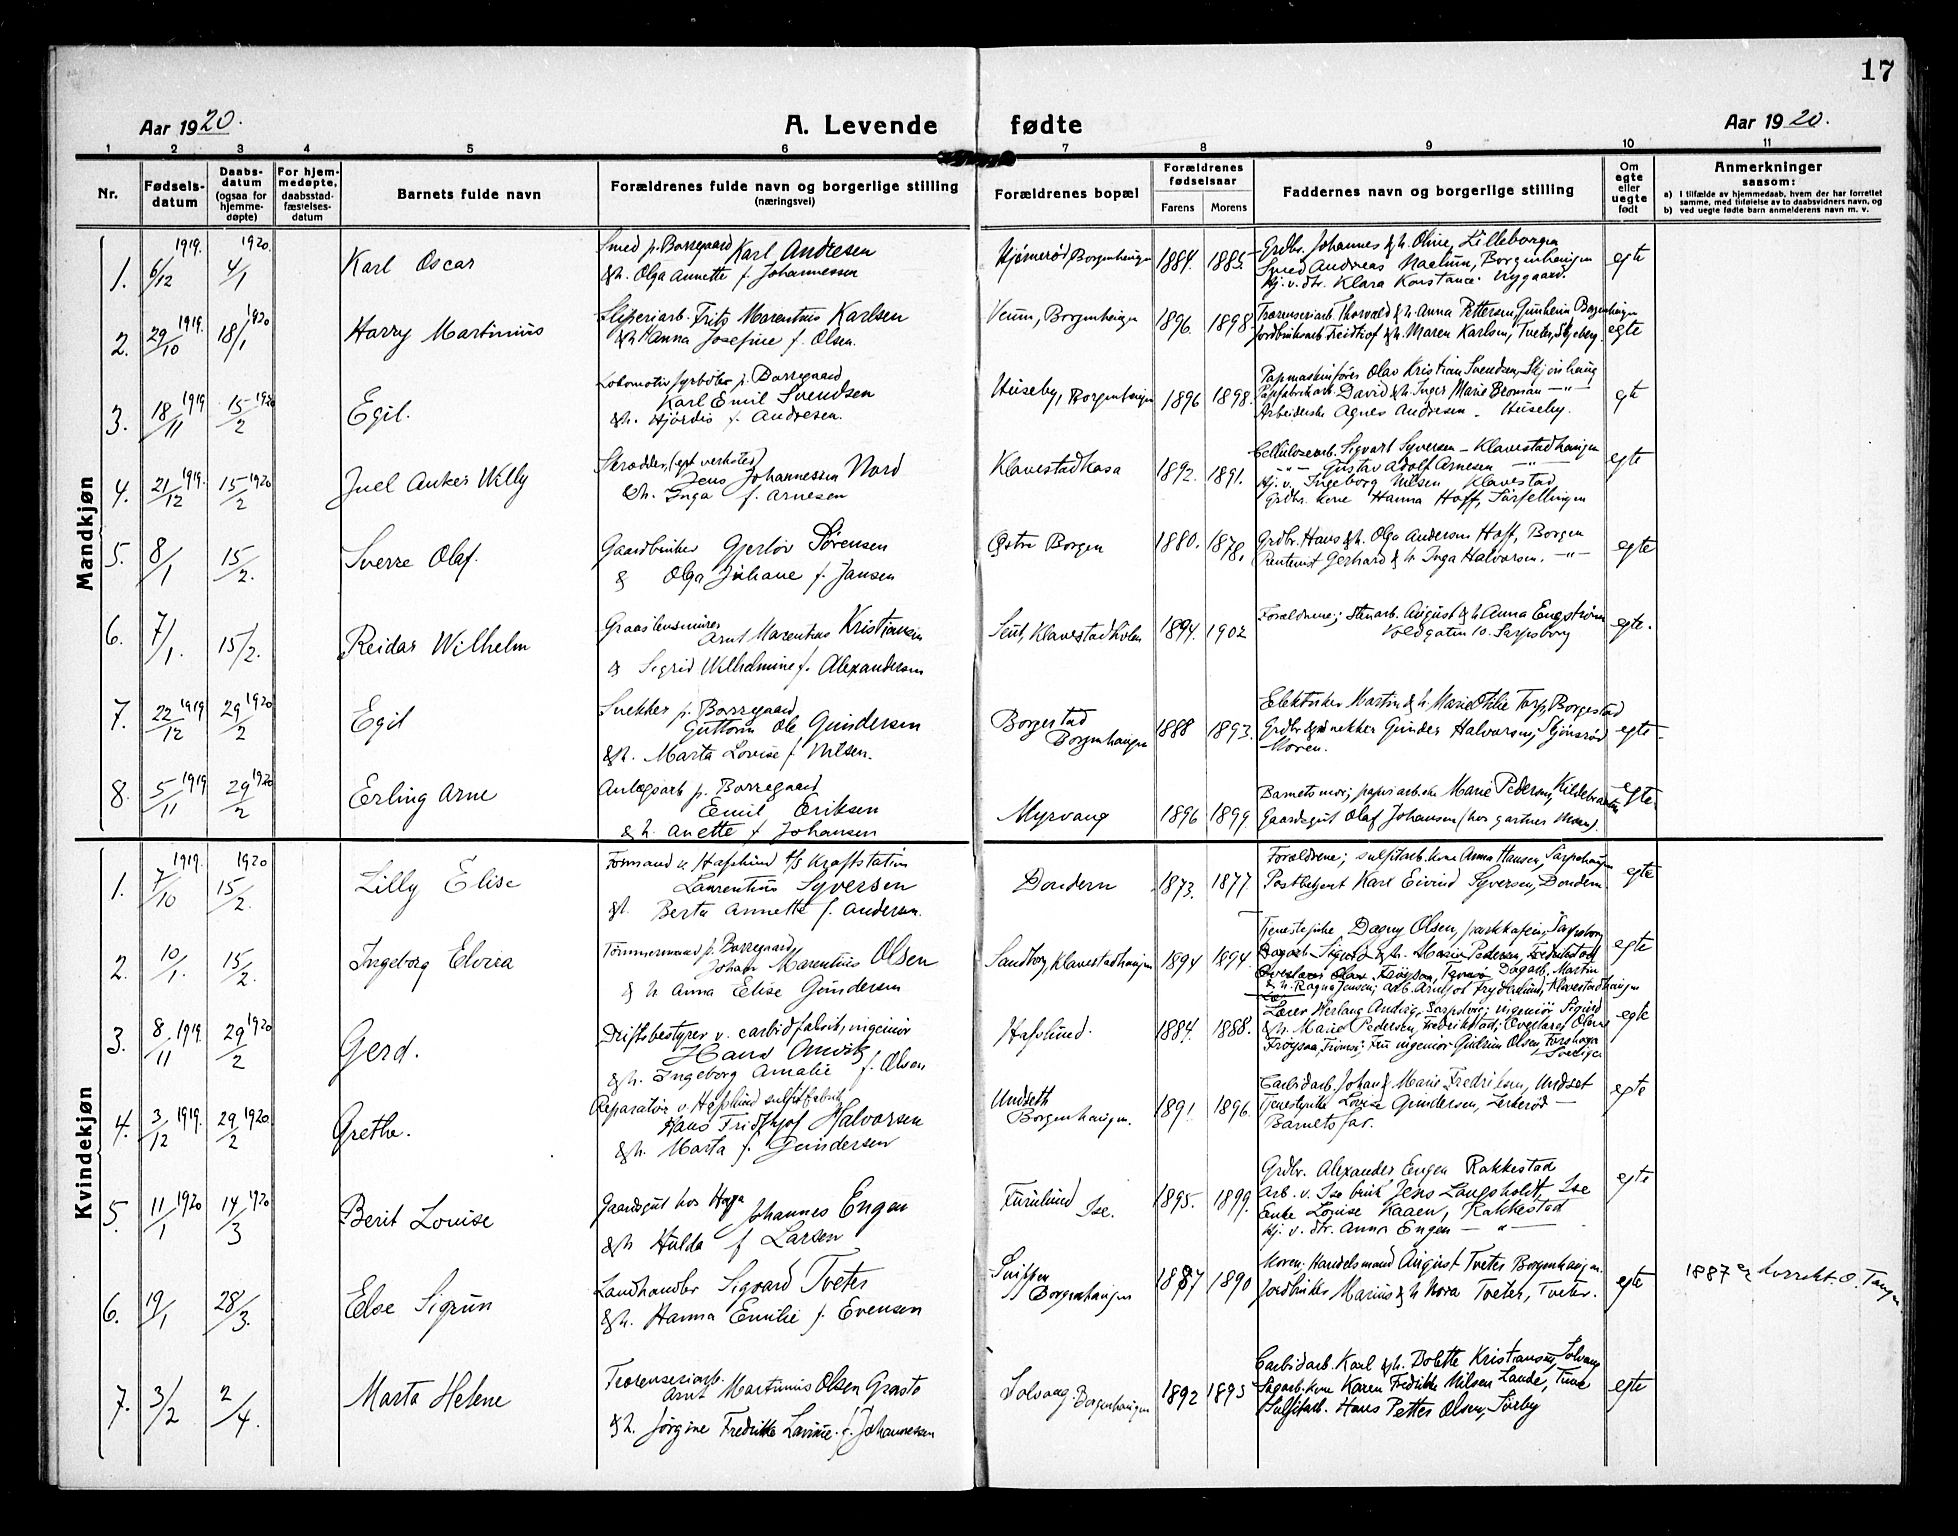 17
Aar 1920.
A. Levende fødte
Aar 1920.
1 2 3 4 5 6 7 8 9 10 11
Nr.
Fødselsdatum
Daabsdatum (ogsaa for hjemmedøpte)
For hjemmedøpte, daabsstadfæstelsesdatum
Barnets fulde navn
Forældrenes fulde navn og borgerlige stilling
(næringsvei)
Forældrenes bopæl
Forældrenes fødselsaar
Farens Morens
Faddernes navn og borgerlige stilling
Om egte eller uegte født
Anmerkninger
saasom:
a) I tilfælde av hjemmedaab, hvem der har forrettet samme, med tilføielse av to daabsvidners navn, og
b) ved uegte fødte barn anmelderens navn m. v.
Mandkjøn
1. 1919. 6/12 1920. 4/1 Karl Oscar
Smed p. Borregaard Karl Andresen
&h. Olga Annette f. Johannessen
Hjørnerød, Borgenhaugen 1884. 1885.
Grdbr. Johannes &h. Oline Lilleborgen
Smed Andreas Naelum, Borgenhaugen
Hj. v. dtr. Klara Konstance Nygaard.
egte
2. 1919. 29/10 1920 18/1 Harry Martinius
Sliperiarb. Frits Marentius Karlsen
&h Hanna Josefine f. Olsen.
Veum, Borgenhaugen 1896. 1898.
Træsenseriarb. Thorvald &h Anna Pettersen, Borgenhaugen
Jordbrukerarb. Fridthof &h. Maren Karlsen, Tveter, Skjeberg.
egte
3. 18/11 1919 15/2 1920 Egil.
Lokomotivfyrbøter p. Borregaard
Karl Emil Svendsen
&h. Hjørdis f. Andresen.
Huseby, Borgenhaugen 1896 1898.
Papmaskinfører Olav Kristian Svendsen,
Papfabrikarb. David &h. Inger Marie Broman -"-
Arbeiderske Agnes Andresen - Huseby.
egte
4. 21/12 1919. 15/2 1920 Juel Anker Willy
Skrædder, (eget verksted)
Jens Johannessen Nord
&h. Inga f. Arnesen
Klavestadhasa 1892. 1891.
Cellulosearb. Sigvart Syversen - Klavestadhaugen
-"- Gustav Adolf Arnesen -"-
Hj. v. Ingeborg Nilsen Klavestad
Grdbr. kone Hanna Hoff,
egte
5. 8/1 15/2. Sverre Olaf.
Gaardbruker Gjerløv Sørensen
& Olga Juliane f. Jansen
Østre Borgen 1880. 1878.
Grdbr. Hans &h. Olga Andersen Hoff, Borgen
Gerhard &h Inga Halvorsen. -"-
egte
6. 7/1. 15/2. Reidar Wilhelm
Graastensmurer
Arnt Marentius Kristiansen
& Sigrid Wilhelmine f. Alexandersen
Klavestadholen 1894. 1902
Forældrene; Stenarb. August &h Anna Engstrøm
Voldgaten 10. Sarpsborg
egte.
7. 22/12 1919 29/2 1920 Egil
Snekker p. Borregaard
Guttorm Ole Gundersen
&h. Marta Lovise f. Nilsen.
Borgestad
Borgenhaugen 1888 1893.
Elektriker Martin &h Marie Otilie Torp, Borgestad
Grdbr. & snekker Gunder Halvorsen,
Moren.
egte.
8. 5/11 1919 29/2 1920 Erling Arne
Anlægsarb p. Borregaard
Emil Eriksen
&h. Anette f. Johansen
Myrvang 1896 1899.
Barnets mor; papirarb.ske Marie Pedersen,
Gaardsgut Olaf Johansen (hos gartner
egte.
Kvindekjøn
1. 1919. 7/10 1920 15/2. Lilly Elise
Formand v. Hafslund A/S Kraftstation
Laurentius Syversen
&h. Berta Annette f. Andersen.
Dondern 1873. 1877.
Forældrene; sulfitarb. kone Anna Hansen, Sarpehaugen
Postbetjent Karl Eivind Syversen, Dondern
egte
2. 10/1. 15/2. Ingeborg Elvira
Tømmermand p. Borregaard
Johan Marentius Olsen
& h Anna Elise Gundersen
Sandborg, Klavestadhaugen 1894 1894.
Tjenestepike Dagny Olsen, Sarpsborg
Martin
&h. Ragna Jensen; arb. Arnljot Frydenlund, Klavestadhaugen
egte
3. 8/11 1919. 29/2 1920 Gerd.
Driftsbestyrer v. carbidfabrik, ingeniør
Hans
&h. Ingeborg Amalie f. Olsen
Hafslund. 1884. 1888.
Lærer Herlaug Sarpsborg; ingeniør Sigurd
&h. Marie Pedersen, Fredrikstad; Overlærer Olav
Frøysaa, Tromsø; Fru ingeniør Gudrun Olsen,
Sverige
egte
4. 3/12 1919. 29/2 1920. Grethe.
Reparatør v. Hafslund sulfitfabrik
Hans Fridthjof Halvorsen
&h. Marta f. Gundersen
Undseth
Borgenhaugen. 1891. 1896.
Carbidarb. Johan & Marie Fredriksen, Undset
Tjenestepike Lovise Gundersen,
Barnets far.
egte
5. 11/1 1920 14/3 1920 Berit Louise
Gaardsgut hos Haga
Johannes Engen
&h Hulda f Larsen
Furulund
Ise. 1895. 1899.
Grdbr. Alexander Engen Rakkestad
Arb. v. Ise bruk Jens Langsholdt, Ise
Enke Lovise Kaaen, Rakkestad
Hj. v. dtr. Anna Engen -"-
egte
6. 19/1 28/3. Else Sigrun
Landhandler Sigvard Tveter
&h. Hanna Emilie f. Evensen
Borgenhaugen 1887 1890
Moren, Handelsmand August Tveter Borgenhaugen.
Jordbruker Marius &h Nora Tveter, Tveter.
egte
1887 er korrekt. O. Tangen
7. 3/2 2/4. Marta Helene
Træsenseriarb.
Arnt Martinius Olsen Grasto
&h. Jørgine Fredrikke Lavine f. Johannessen
Solvang. Borgenhaugen 1892 1895
Carbidarb. Karl &h. Dolette Kristiansen, Solvang
Sagarb. kone Karen Fredrikke Nilsen Lande, Tune
Sulfitarb. Hans Petter Olsen, Sørby
egte